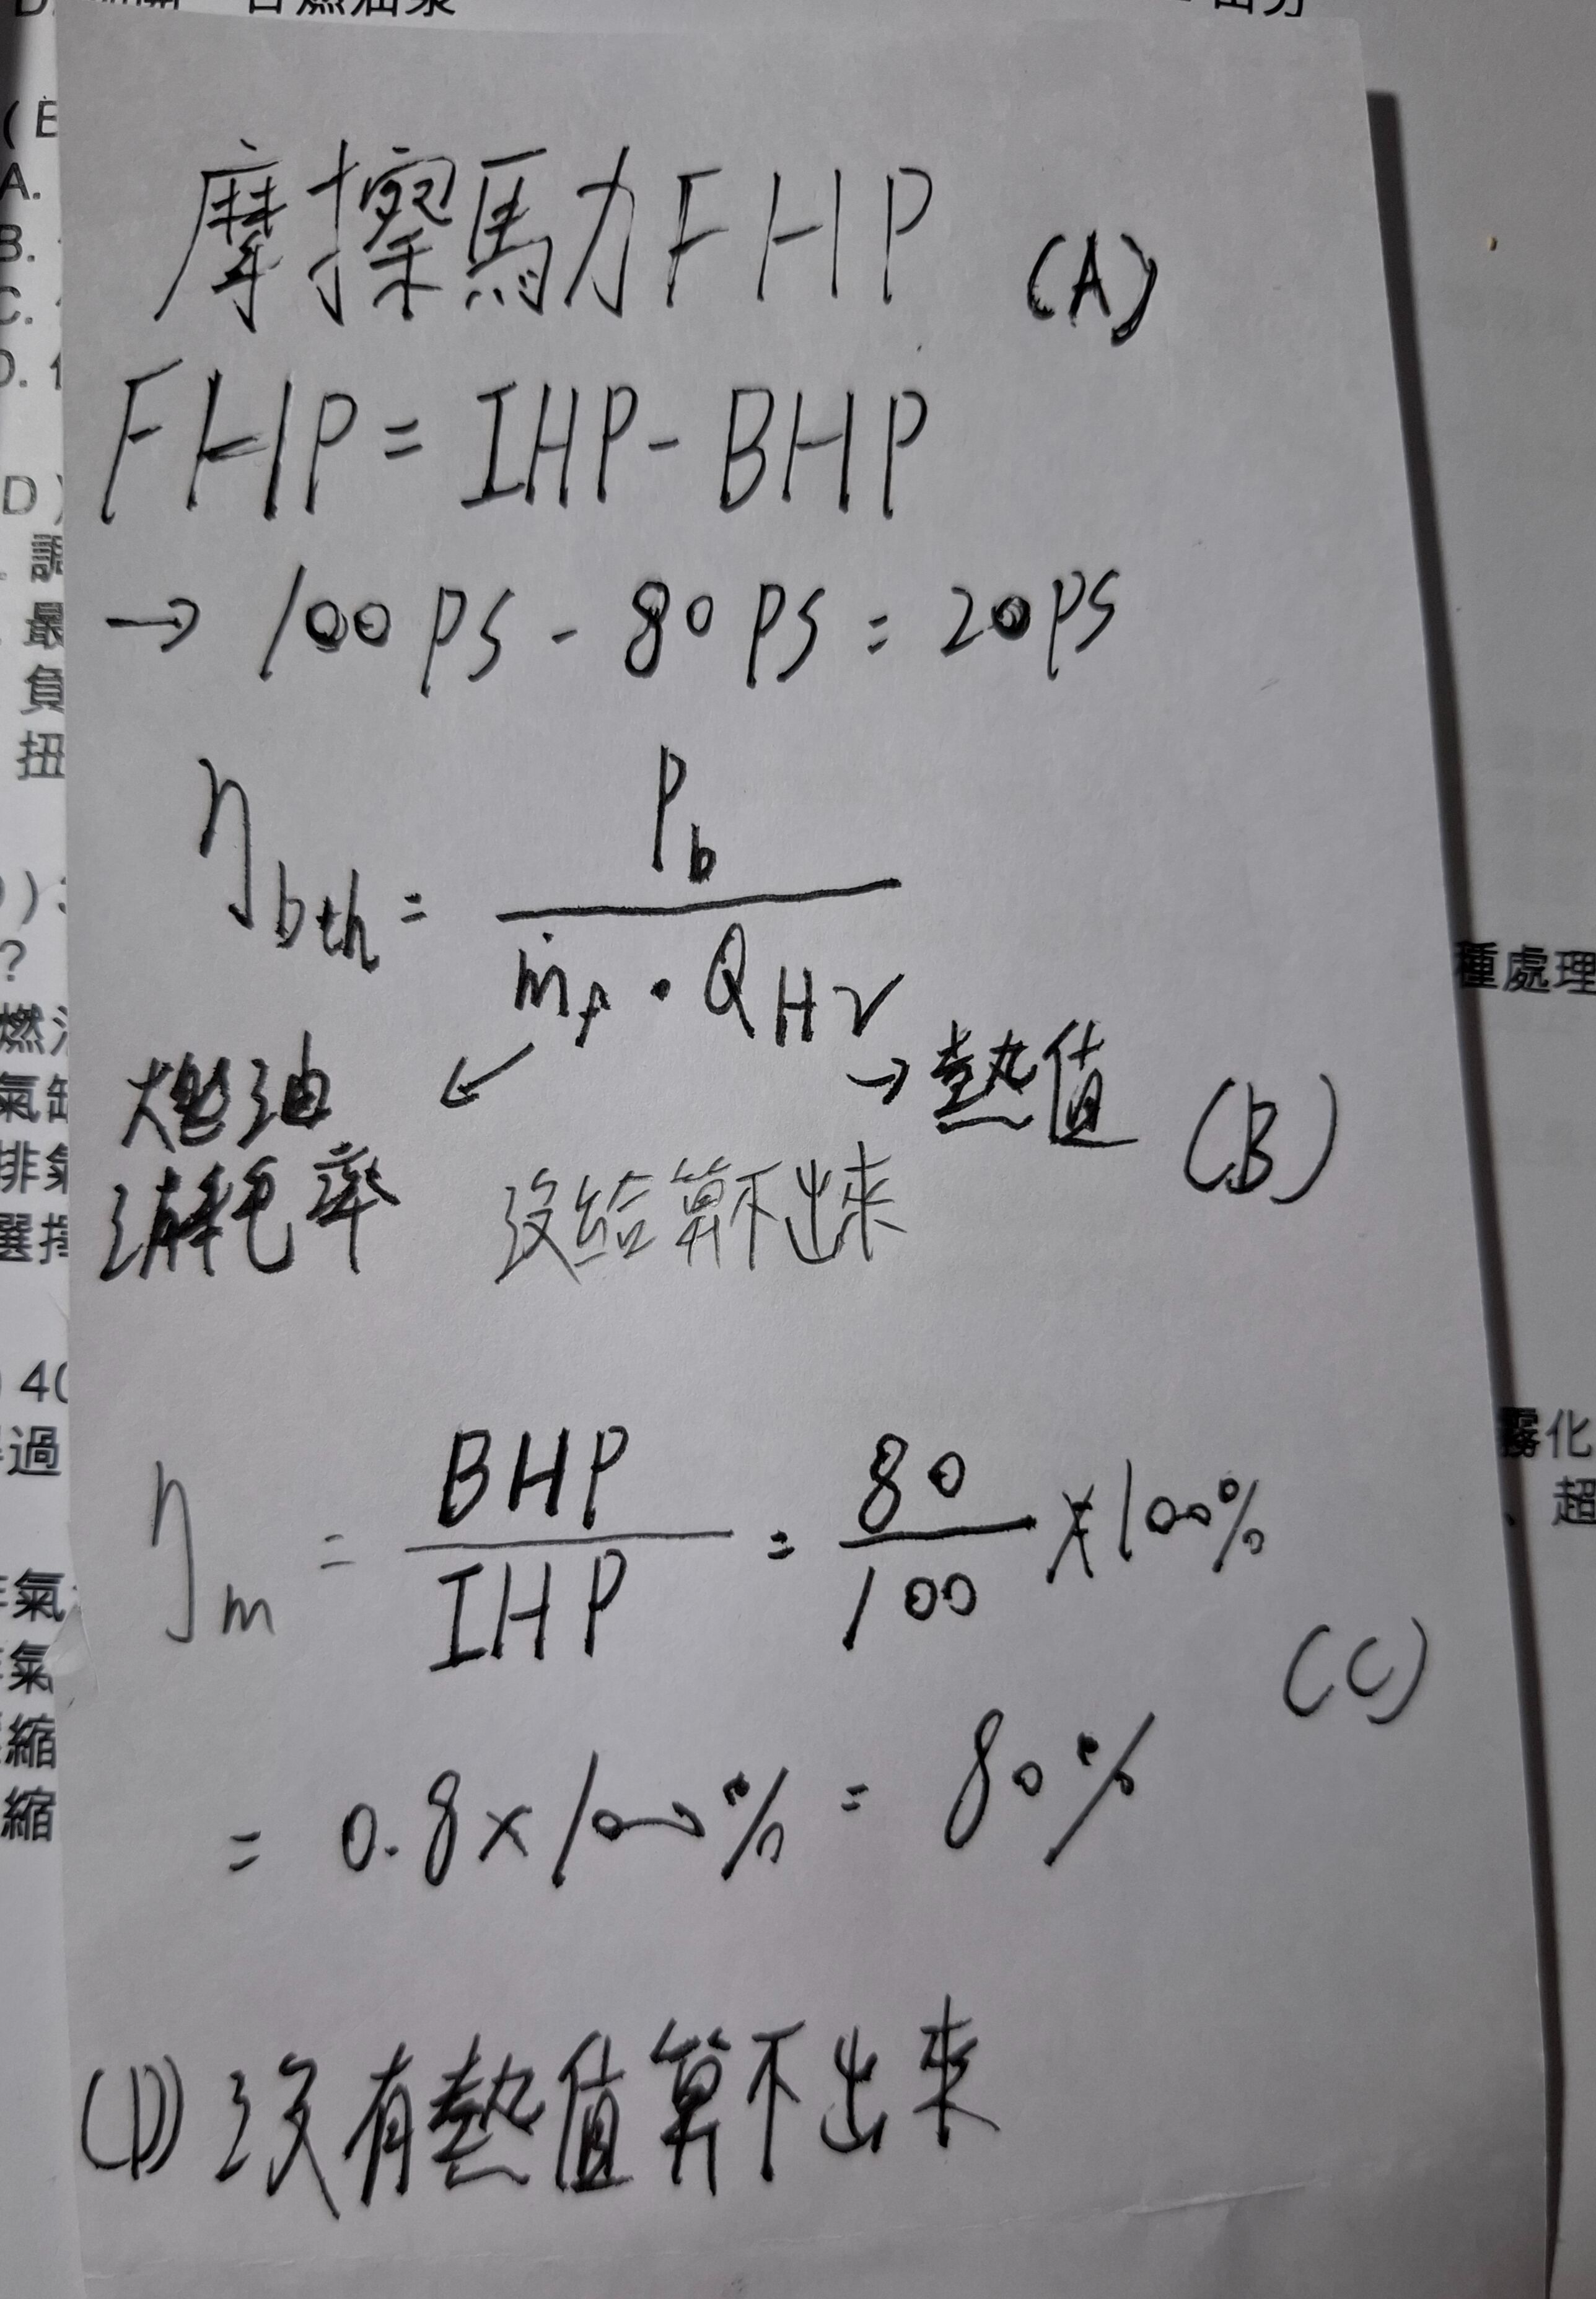 摩擦馬力FHP (A)
FHP = IHP - BHP
→ 100 PS - 80 PS = 20 PS
η bth = P b / ṁ f · Q HV
燃油消耗率 ← → 熱值 (B)
沒給算不出來
η m = BHP / IHP = 80 / 100 × 100%
(C)
= 0.8 × 100% = 80%
(D) 沒有熱值算不出來
A.
B.
C.
D)
調
最
負
扭
?
種處理
40
過
霧化
、超
縮
縮